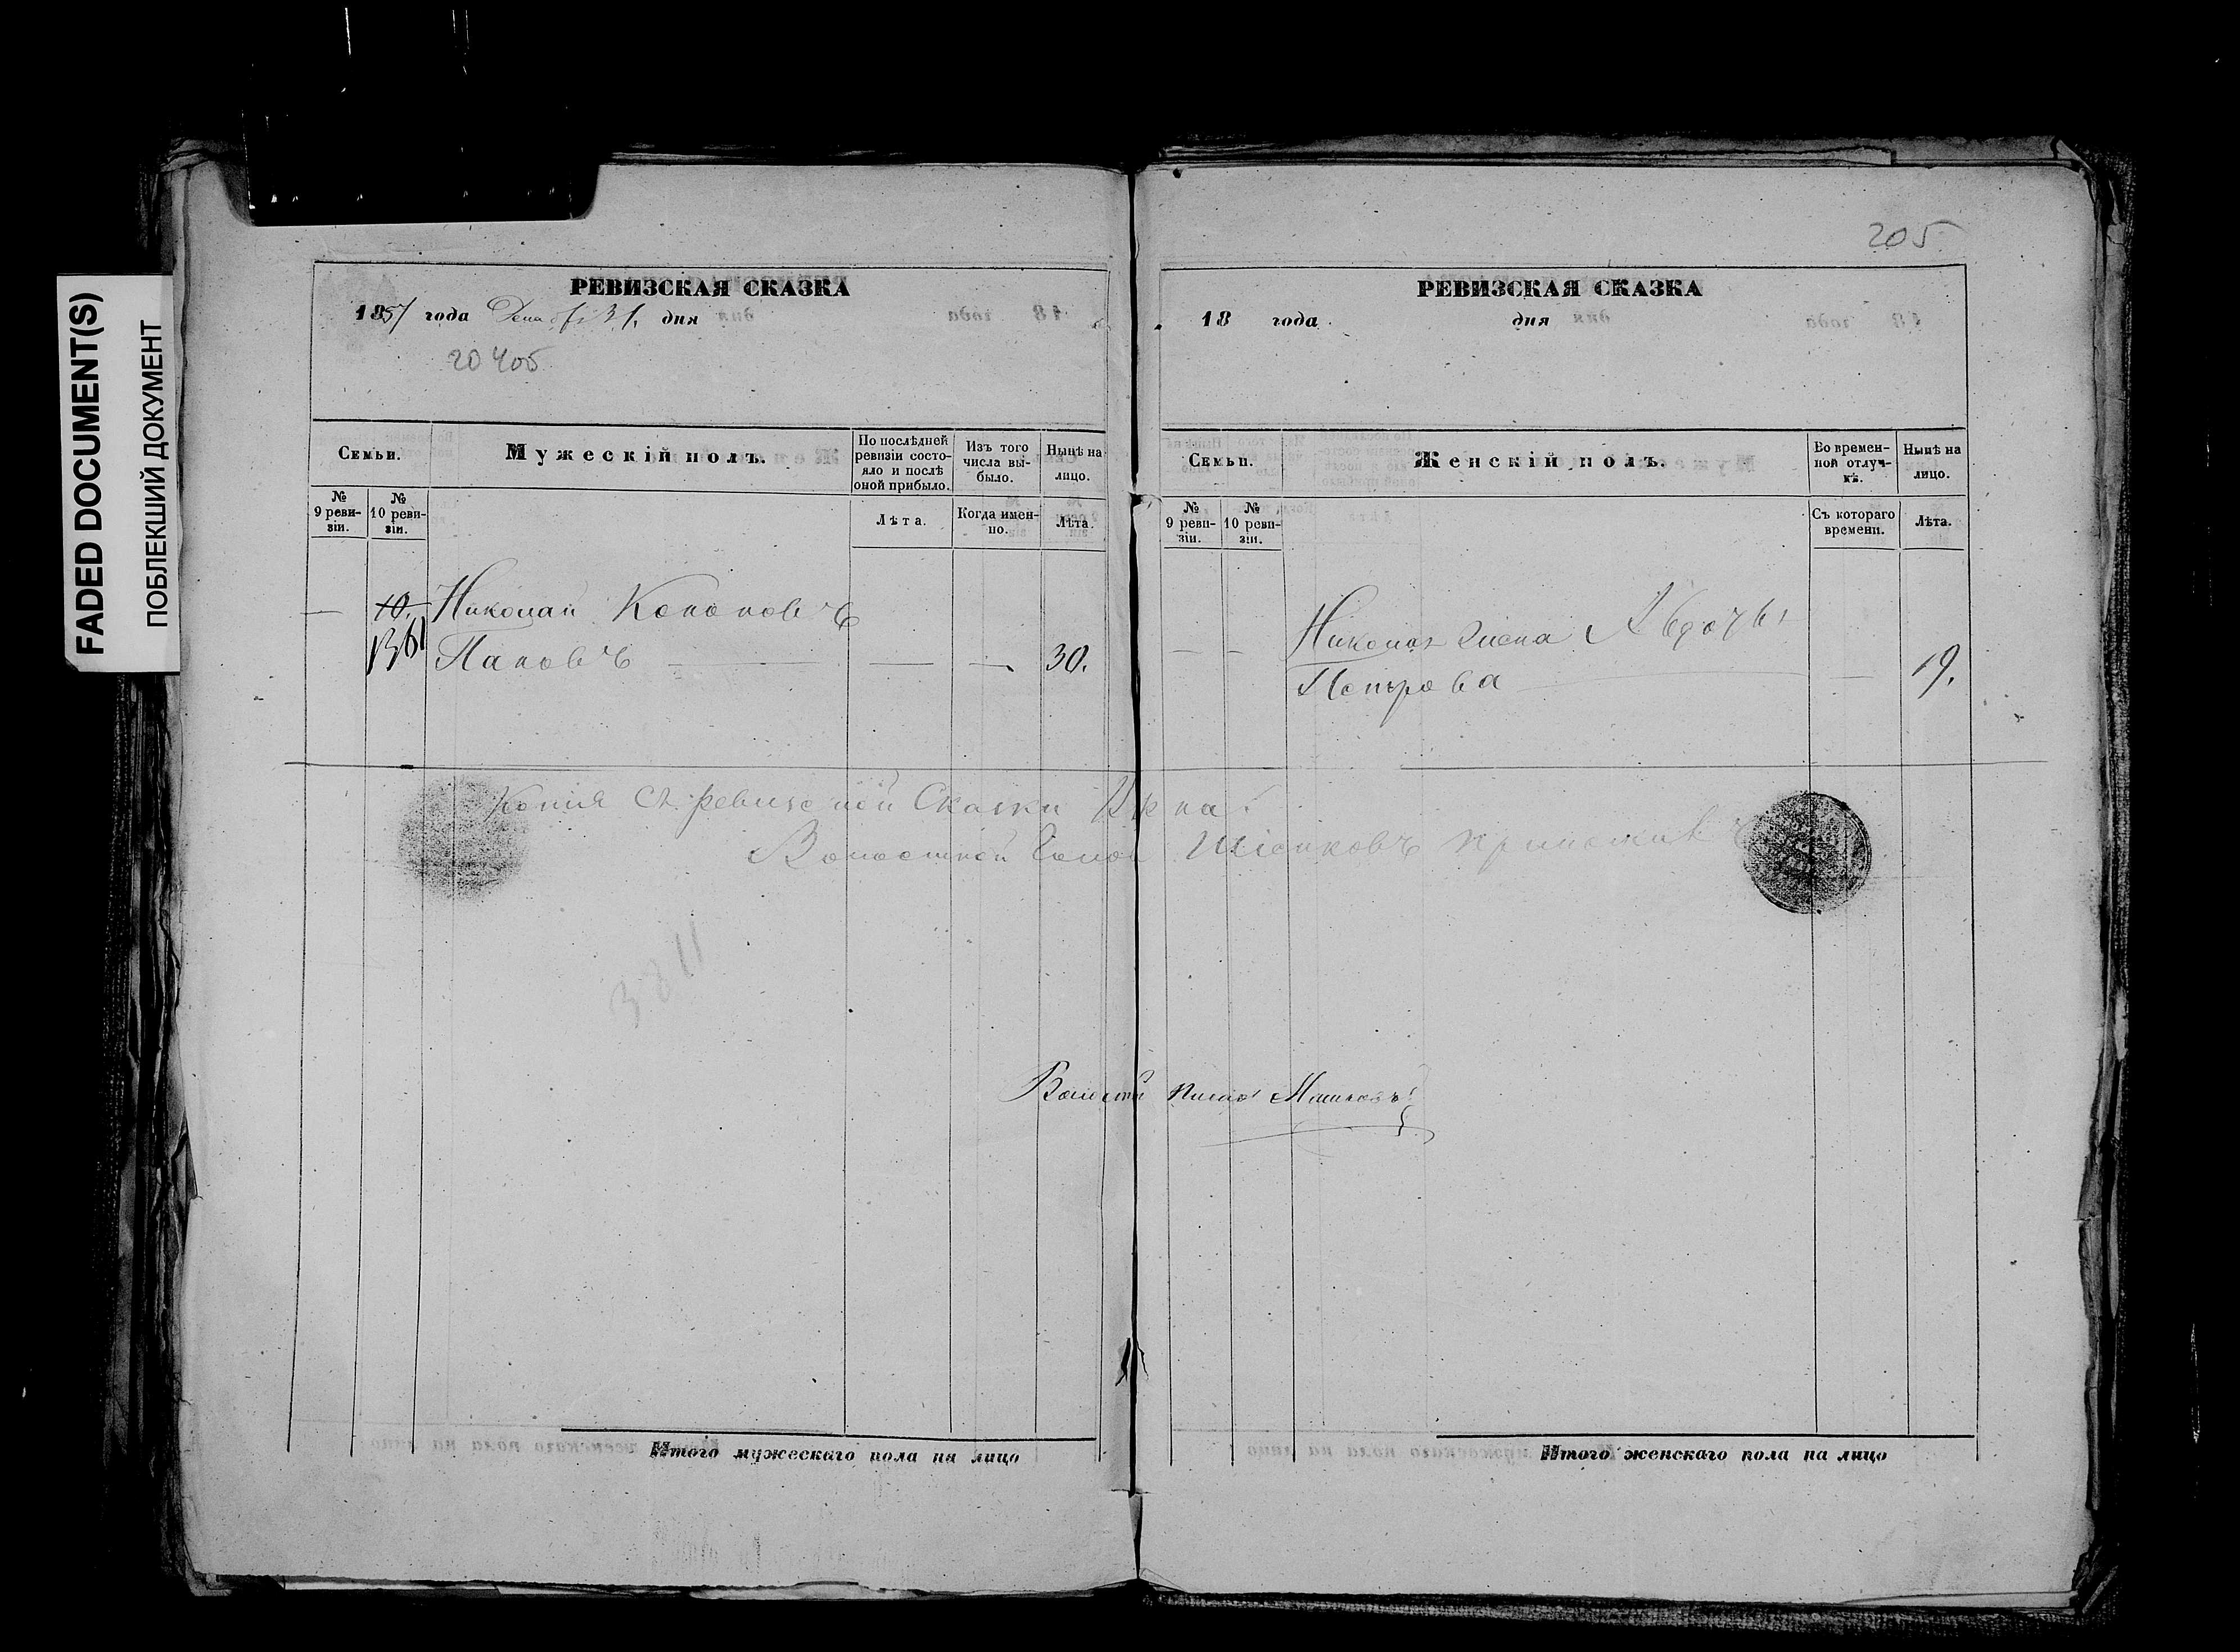 FADED DOCUMENT(S)
ПОБЛЕКШИЙ ДОКУМЕНТ
РЕВИЗСКАЯ СКАЗКА
1857 года 31. дня
20405
Семьи.
Мужескій полъ.
По послѣдней ревизіи состояло и послѣ оной прибыло.
Изъ того числа выбыло.
Нынѣ на лицо.
№ 9 ревизіи.
№ 10 ревизіи.
Лѣта.
Когда именно.
Лѣта.
— 10. Николай Кононовъ
Пановъ — — — 30.
Копія съ ревизской Сказки
Волостной Шишковъ приложилъ
Волостн Машковъ
Итого мужескаго пола на лицо
205
РЕВИЗСКАЯ СКАЗКА
18 года дня
Семьи.
Женскій полъ.
Во временной отлучкѣ.
Нынѣ на лицо.
№ 9 ревизіи.
№ 10 ревизіи.
Съ котораго времени.
Лѣта.
Николая жена Авдотья
— — Петрова — — 19.
Итого женскаго пола на лицо